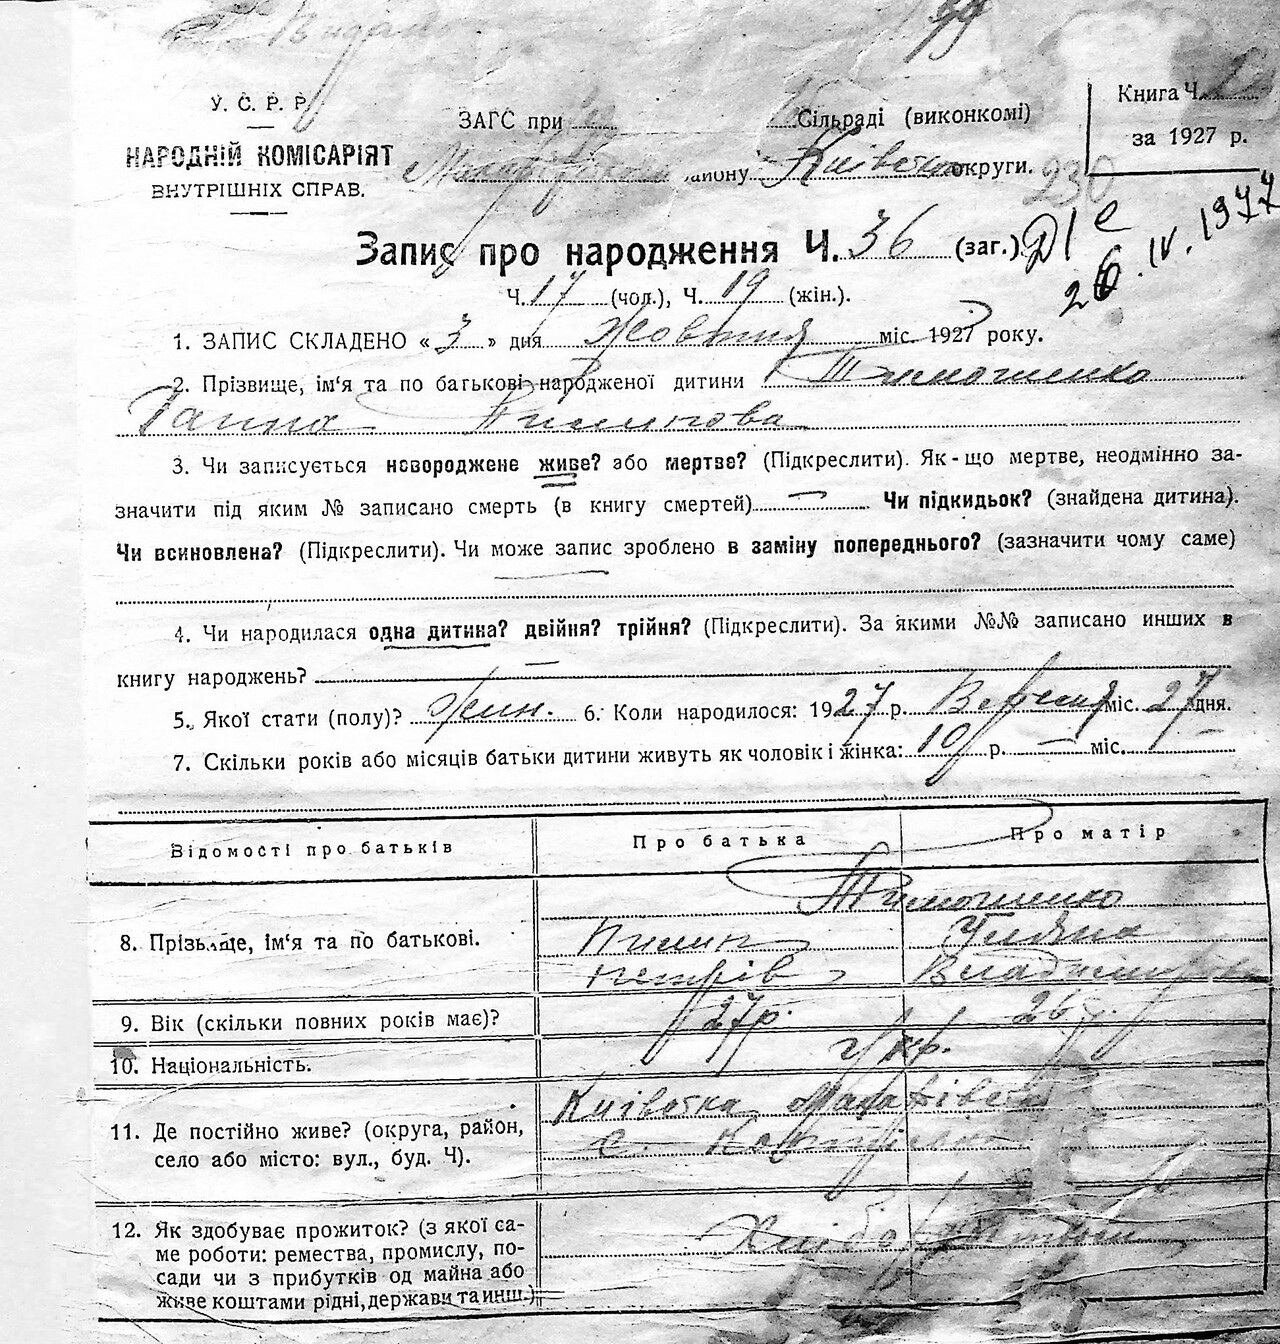 У. С. Р. Р.
НАРОДНІЙ КОМІСАРІЯТ
ВНУТРІШНІХ СПРАВ.
ЗАГС при Сільраді (виконкомі)
району Київської округи.
230
Книга Ч.
за 1927 р.
Запис про народження Ч. 36 (заг.)
26.IV.1977
Ч. 17 (чол.), Ч. 19 (жін.).
1. ЗАПИС СКЛАДЕНО « 3 » дня Жовтня міс. 1927 року.
2. Прізвище, ім‘я та по батькові народженої дитини Тимошенко
Ганна Пилипова
3. Чи записується новороджене живе? або мертве? (Підкреслити). Як-що мертве, неодмінно за-
значити під яким № записано смерть (в книгу смертей) — Чи підкидьок? (знайдена дитина).
Чи всиновлена? (Підкреслити). Чи може запис зроблено в заміну попереднього? (зазначити чому саме)
4. Чи народилася одна дитина? двійня? трійня? (Підкреслити). За якими №№ записано инших в
книгу народжень? —
5. Якої стати (полу)? Жин. 6. Коли народилося: 1927 р. Вересня міс. 27 дня.
7. Скільки років або місяців батьки дитини живуть як чоловік і жінка: 10 р. — міс. —
Відомості про батьків Про батька Про матір
Тимошенко
8. Прізвище, ім‘я та по батькові. Пилип Уляна
Петрів
9. Вік (скільки повних років має)? 27р. 26р.
10. Національність. Укр.
Київська Макарівськ
11. Де постійно живе? (округа, район,
село або місто: вул., буд. Ч). с.
12. Як здобуває прожиток? (з якої са-
ме роботи: ремества, промислу, по-
сади чи з прибутків од майна або
живе коштами рідні, держави та инш.)